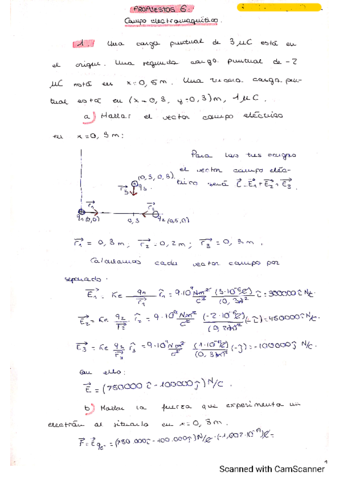 PROPUESTOS 6.
Campo electromagnético.
1. Una carga puntual de 3 μC está en
el origen. Una segunda carga puntual de -2
μC está en x=0,5m. Una tercera carga pun-
tual está en (x=0,3, y=0,3)m, 1μC.
a) Hallar el vector campo eléctrico
en x=0,3m:
Para las tres cargas
el vector campo eléc-
trico será E=E1+E2+E3
(0,3, 0,3)
q3
r3
r1
r2
q1(0,0)
0,3
q2(0,5,0)
r1 = 0,3m; r2=0,2m; r3=0,3m.
Calculamos cada vector campo por
separado:
E1=Ke q1/r1² r1=9·10⁹ Nm²/C² (3·10⁻⁶C)/(0,3)² i=300000 i N/C.
E2=Ke q2/r2² r2=9·10⁹ Nm²/C² (-2·10⁻⁶C)/(0,2)² (-i)=450000 i N/C.
E3=Ke q3/r3² r3=9·10⁹ Nm²/C² (1·10⁻⁶C)/(0,3)² (-j)=-100000 j N/C.
Con ello:
E=(750000 i -100000 j) N/C.
b) Hallar la fuerza que experimenta un
electrón al situarlo en x=0,3m.
Scanned with CamScanner